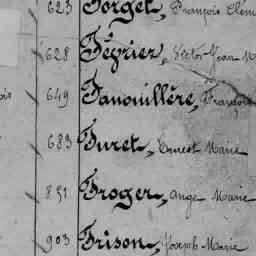 623 Forget, François Clém
628 Février, Victor Jean M
649 Fanouillère, François
683 Furet, Ernest Marie
851 Froger, Ange Marie
903 Frison, Joseph Marie